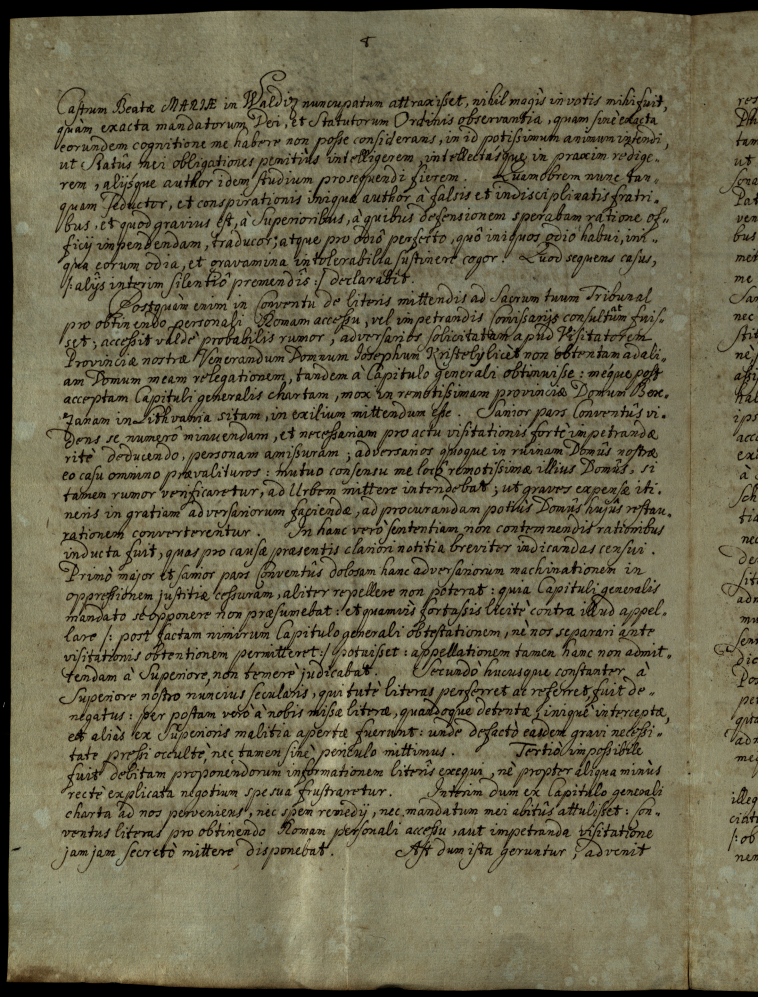 8
Castrum Beatæ MARIÆ in Waldiz nuncupatum attraxisset, nihil magis in votis mihi fuit,
quàm exacta mandatorum Dei, et Statutorum Ordinis observantia, quam sine exacta
eorundem cognitione me habere non posse considerans, in id potissimum animum intendi,
ut Statûs mei obligationes penitiùs intelligerem, intellectasque in praxim redige-
rem, alijsque author idem studium prosequendi fierem. Quamobrem nunc tan-
quam seductor, et conspirationis iniquæ author à falsis et indisciplinatis fratri-
bus, et quod gravius est, à Superioribus, à quibus defensionem sperabam ratione of-
ficij impendendam, traducor; atque pro odio perfecto, quô iniquos odio habui, ini-
qua eorum odia, et gravamina intolerabilia sustinere cogor. Quod sequens casus,
/: alijs interim silentiô premendis :/ declarabit.
Postquàm enim in Conventu de literis mittendis ad Sacrum tuum Tribunal
pro obtinendo personali Romam accessu, vel impetrandis Comissarijs consultum fuis-
set; accessit valdè probabilis rumor, adversarios solicitatam apud Visitatorem
Provinciæ nostræ Venerandum Domnum Josephum Kristely licet non obtentam ad ali-
am Domum meam relegationem, tandem à Capitulo generali obtinuisse: meque post
acceptam Capituli generalis chartam, mox in remotissimam provinciæ Domum Bere-
zanam in Lithvania sitam, in exilium mittendum esse. Sanior pars Conventûs vi-
dens se numero minuendam, et necessariam pro actu visitationis fortè impetrandæ
ritè deducendo, personam amissuram; adversarios quoque in ruinam Domûs nostræ
eo casu omnino prævalituros: mutuo consensu me loco remotissimæ illius Domûs, si
tamen rumor verificaretur, ad Urbem mittere intendebat; ut graves expensæ iti-
neris in gratiam adversariorum faciendæ, ad procurandam potius Domûs hujus restau-
rationem converterentur. In hanc verò sententiam non contemnendis rationibus
inducta fuit, quas pro causæ præsentis clariori notitia breviter indicandas censui.
Primò major et sanior pars Conventûs dolosam hanc adversariorum machinationem in
oppressionem justitiæ cessuram, aliter repellere non poterat: quia Capituli generalis
mandato se opponere non præsumebat: et quamvis fortassis licitè contra illud appel-
lare /: post factam nimirum Capitulo generali obtestationem, nè nos separari ante
visitationis obtentionem permitteret :/ potuisset: appellationem tamen hanc non admit-
tendam à Superiore, non temerè judicabat. Secundò hucusque constanter à
Superiore nostro nuncius secularis, qui tutè literas perferret ac referret, fuit de-
negatus: per postam verò à nobis missæ literæ, quandoque detentæ, iniquè interceptæ,
et aliàs ex Superioris malitia apertæ fuerunt: unde defactò easdem gravi necessi-
tate pressi occultè, nec tamen sinè periculo mittimus. Tertiò impossibile
fuit debitam proponendorum informationem literis exequi, nè propter aliqua minùs
rectè explicata negotium spe sua frustraretur. Interim dum ex Capitulo generali
charta ad nos perveniens, nec spem remedij, nec mandatum mei abitûs attulisset: Con-
ventus literas pro obtinendo Romam personali accessu, aut impetranda visitatione
jamjam secretò mittere disponebat. Ast dum ista geruntur, advenit